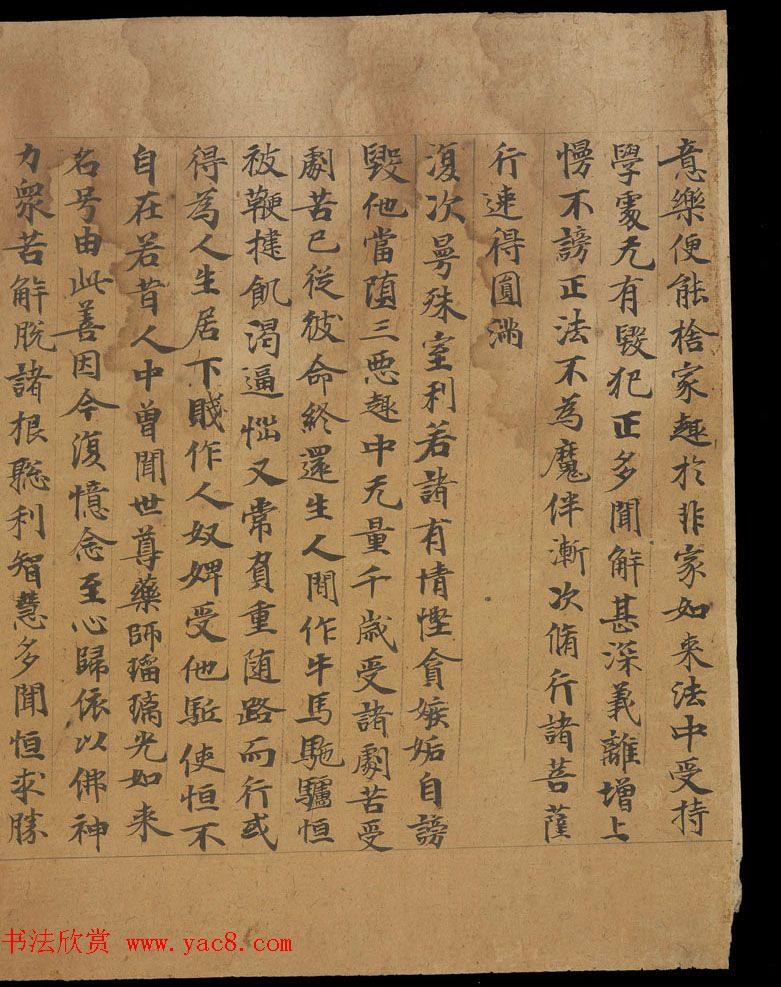 意樂便能捨家趣於非家如来法中受持
學處无有毀犯正多聞解甚深義離增上
慢不謗正法不為魔伴漸次脩行諸菩薩
行速得圓滿
復次曼殊室利若諸有情慳貪嫉妬自謗
毀他當墮三悪趣中无量千歲受諸劇苦受
劇苦已從彼命終還生人間作牛馬駞驢恒
被鞭撻飢渴逼惱又常負重随路而行或
得為人生居下賤作人奴婢受他駈使恒不
自在若昔人中曾聞世尊藥師瑠璃光如来
名号由此善因今復憶念至心歸依以佛神
力衆苦解脫諸根聡利智慧多聞恒求勝
书法欣赏 www.yac8.com